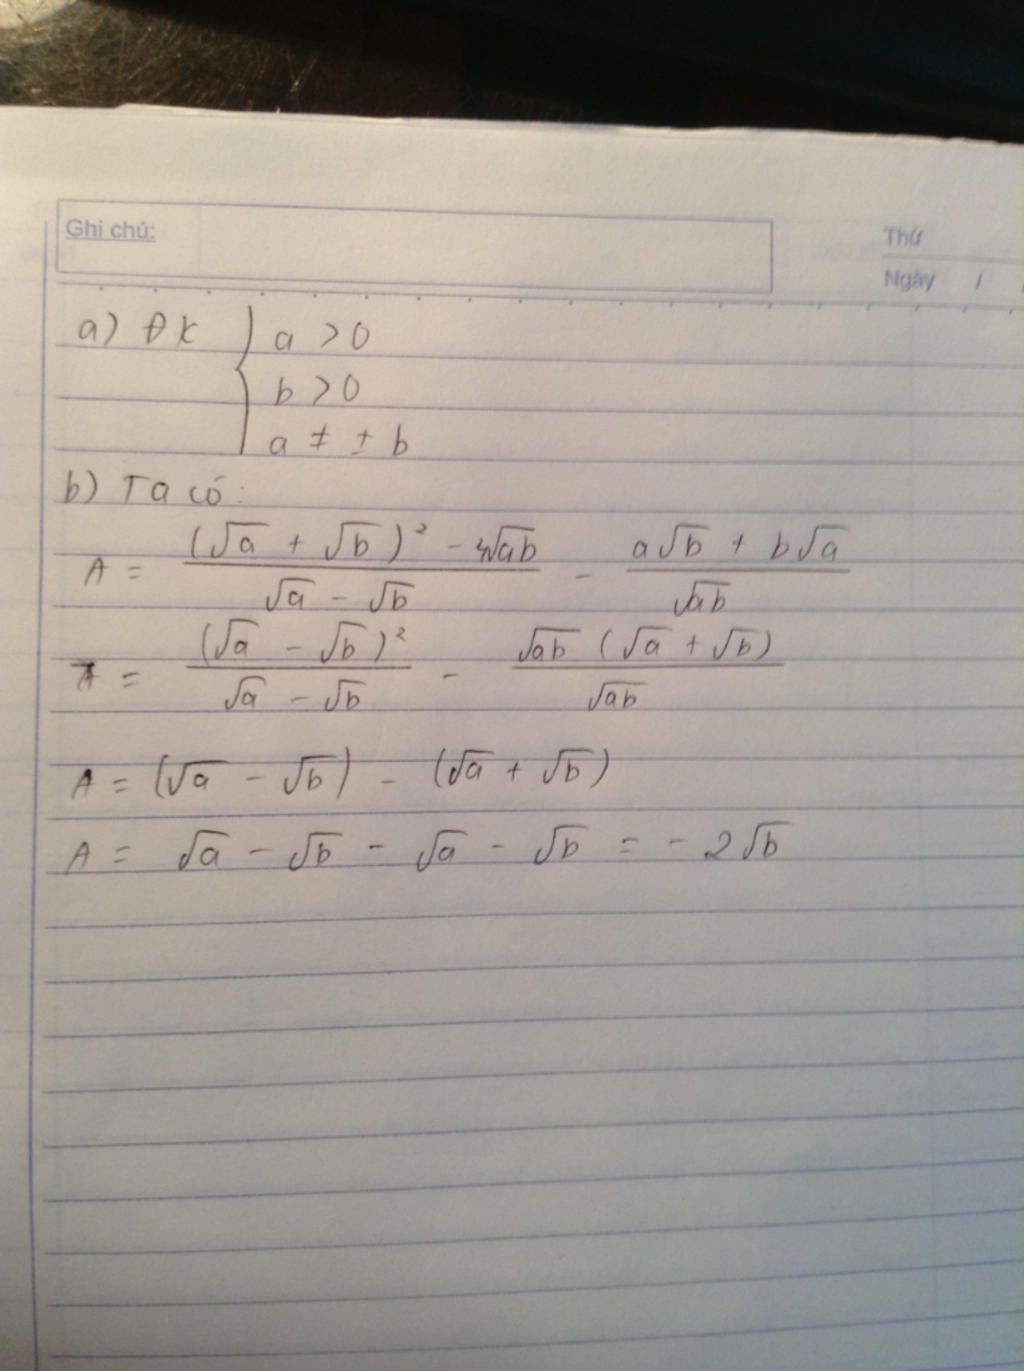 Ghi chú:
Thứ
Ngày / /
a) ĐK { a > 0
b > 0
a ≠ ± b
b) Ta có:
A = ((√a + √b)² - 4√ab)/(√a - √b) - (a√b + b√a)/√ab
A = (√a - √b)²/(√a - √b) - √ab (√a + √b)/√ab
A = (√a - √b) - (√a + √b)
A = √a - √b - √a - √b = - 2√b